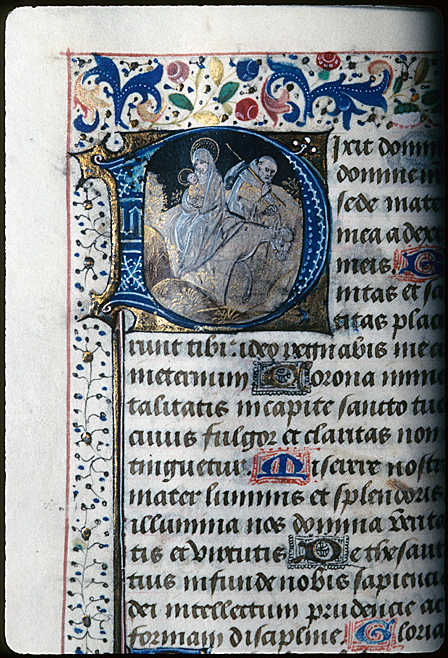 Dixit domin
domine m
sede mater
mea a dext
meis. E
nitas et sa
ritas plac
runt tibi: ideo regnabis me c
meternum Corona inmor
talitatis in capite sancto tu
cuius fulgor et claritas non
tinguetur. Miserere nostri
mater luminis et splendoris
illumina nos domina verita
tis et virtutis De thesau
tuis infunde nobis sapiencia
dei intellectum prudencie ac
formam discipline. Gloria